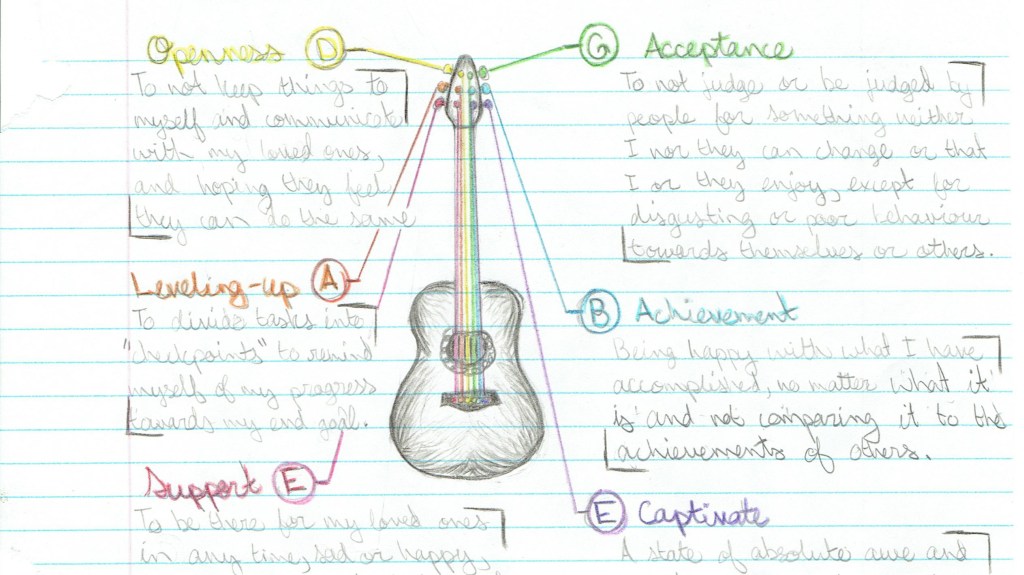 Openness D
To not keep things to
myself and communicate
with my loved ones,
and hoping they feel
they can do the same
Leveling-up A
To divide tasks into
"checkpoints" to remind
myself of my progress
towards my end goal.
Support E
To be there for my loved ones
in any time, sad or happy,
G Acceptance
To not judge or be judged by
people for something neither
I nor they can change or that
I or they enjoy, except for
disgusting or poor behaviour
towards themselves or others.
B Achievement
Being happy with what I have
accomplished, no matter what it
is and not comparing it to the
achievements of others.
E Captivate
A state of absolute awe and